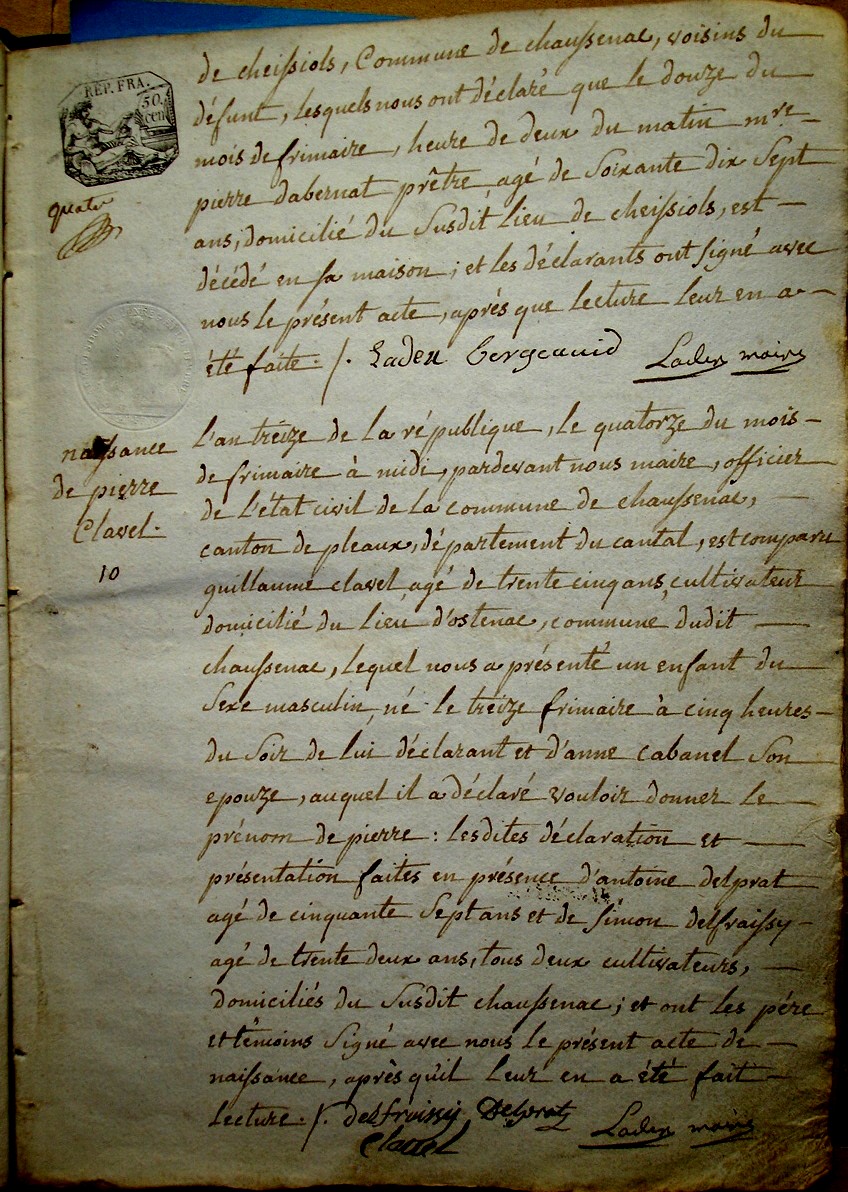 de cheissiols, Commune de chaussenac, voisins du
REP. FRA.
50.
cen
défunt, lesquels nous ont déclaré que le douze du
mois de frimaire, heure de deux du matin mre
quatre
pierre dabernat prêtre agé de Soixante dix Sept
ans, domicilié du Susdit Lieu de cheissiols, est
décédé en sa maison; et les déclarants ont Signé avec
nous le présent acte, après que Lecture Leur en a
été faite. /. Laden Lergeauid Laden maire
naissance
de pierre
Clavel.
10
L'an treize de La république, le quatorze du mois
de frimaire à midi, pardevant nous maire, officier
de L'état civil de La commune de chaussenac,
canton de pleaux, département du cantal, est comparu
guillaume clavel, agé de trente cinq ans, cultivateur
domicilié du Lieu d'ostenac, commune dudit
chaussenac, Lequel nous a présenté un enfant du
Sexe masculin, né le treize frimaire à cinq heures
du Soir de Lui déclarant et d'anne cabanel Son
epouze, auquel il a déclaré vouloir donner le
prénom de pierre: Lesdites déclaration et
présentation faites en présence d'antoine delprat
agé de cinquante Sept ans et de Simon delfraissy
agé de trente deux ans, tous deux cultivateurs,
domiciliés du Susdit chaussenac; et ont Les pére
et témoins Signé avec nous le présent acte de
naissance, après qu'il Leur en a été fait
Lecture. /. delfraissy Delprat
Clavel Laden maire